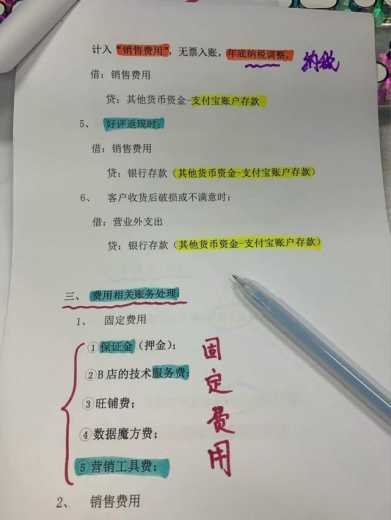 计入“销售费用”，无票入账，年底纳税调整。 纳税
借：销售费用
贷：其他货币资金-支付宝账户存款
5、 好评返现时：
借：销售费用
贷：银行存款（其他货币资金-支付宝账户存款）
6、 客户收货后破损或不满意时：
借：营业外支出
贷：银行存款（其他货币资金-支付宝账户存款）
三、费用相关账务处理
1、 固定费用
①保证金（押金）；
②B店的技术服务费；
③旺铺费；
④数据魔方费；
5营销工具费；
固定费用
2、 销售费用